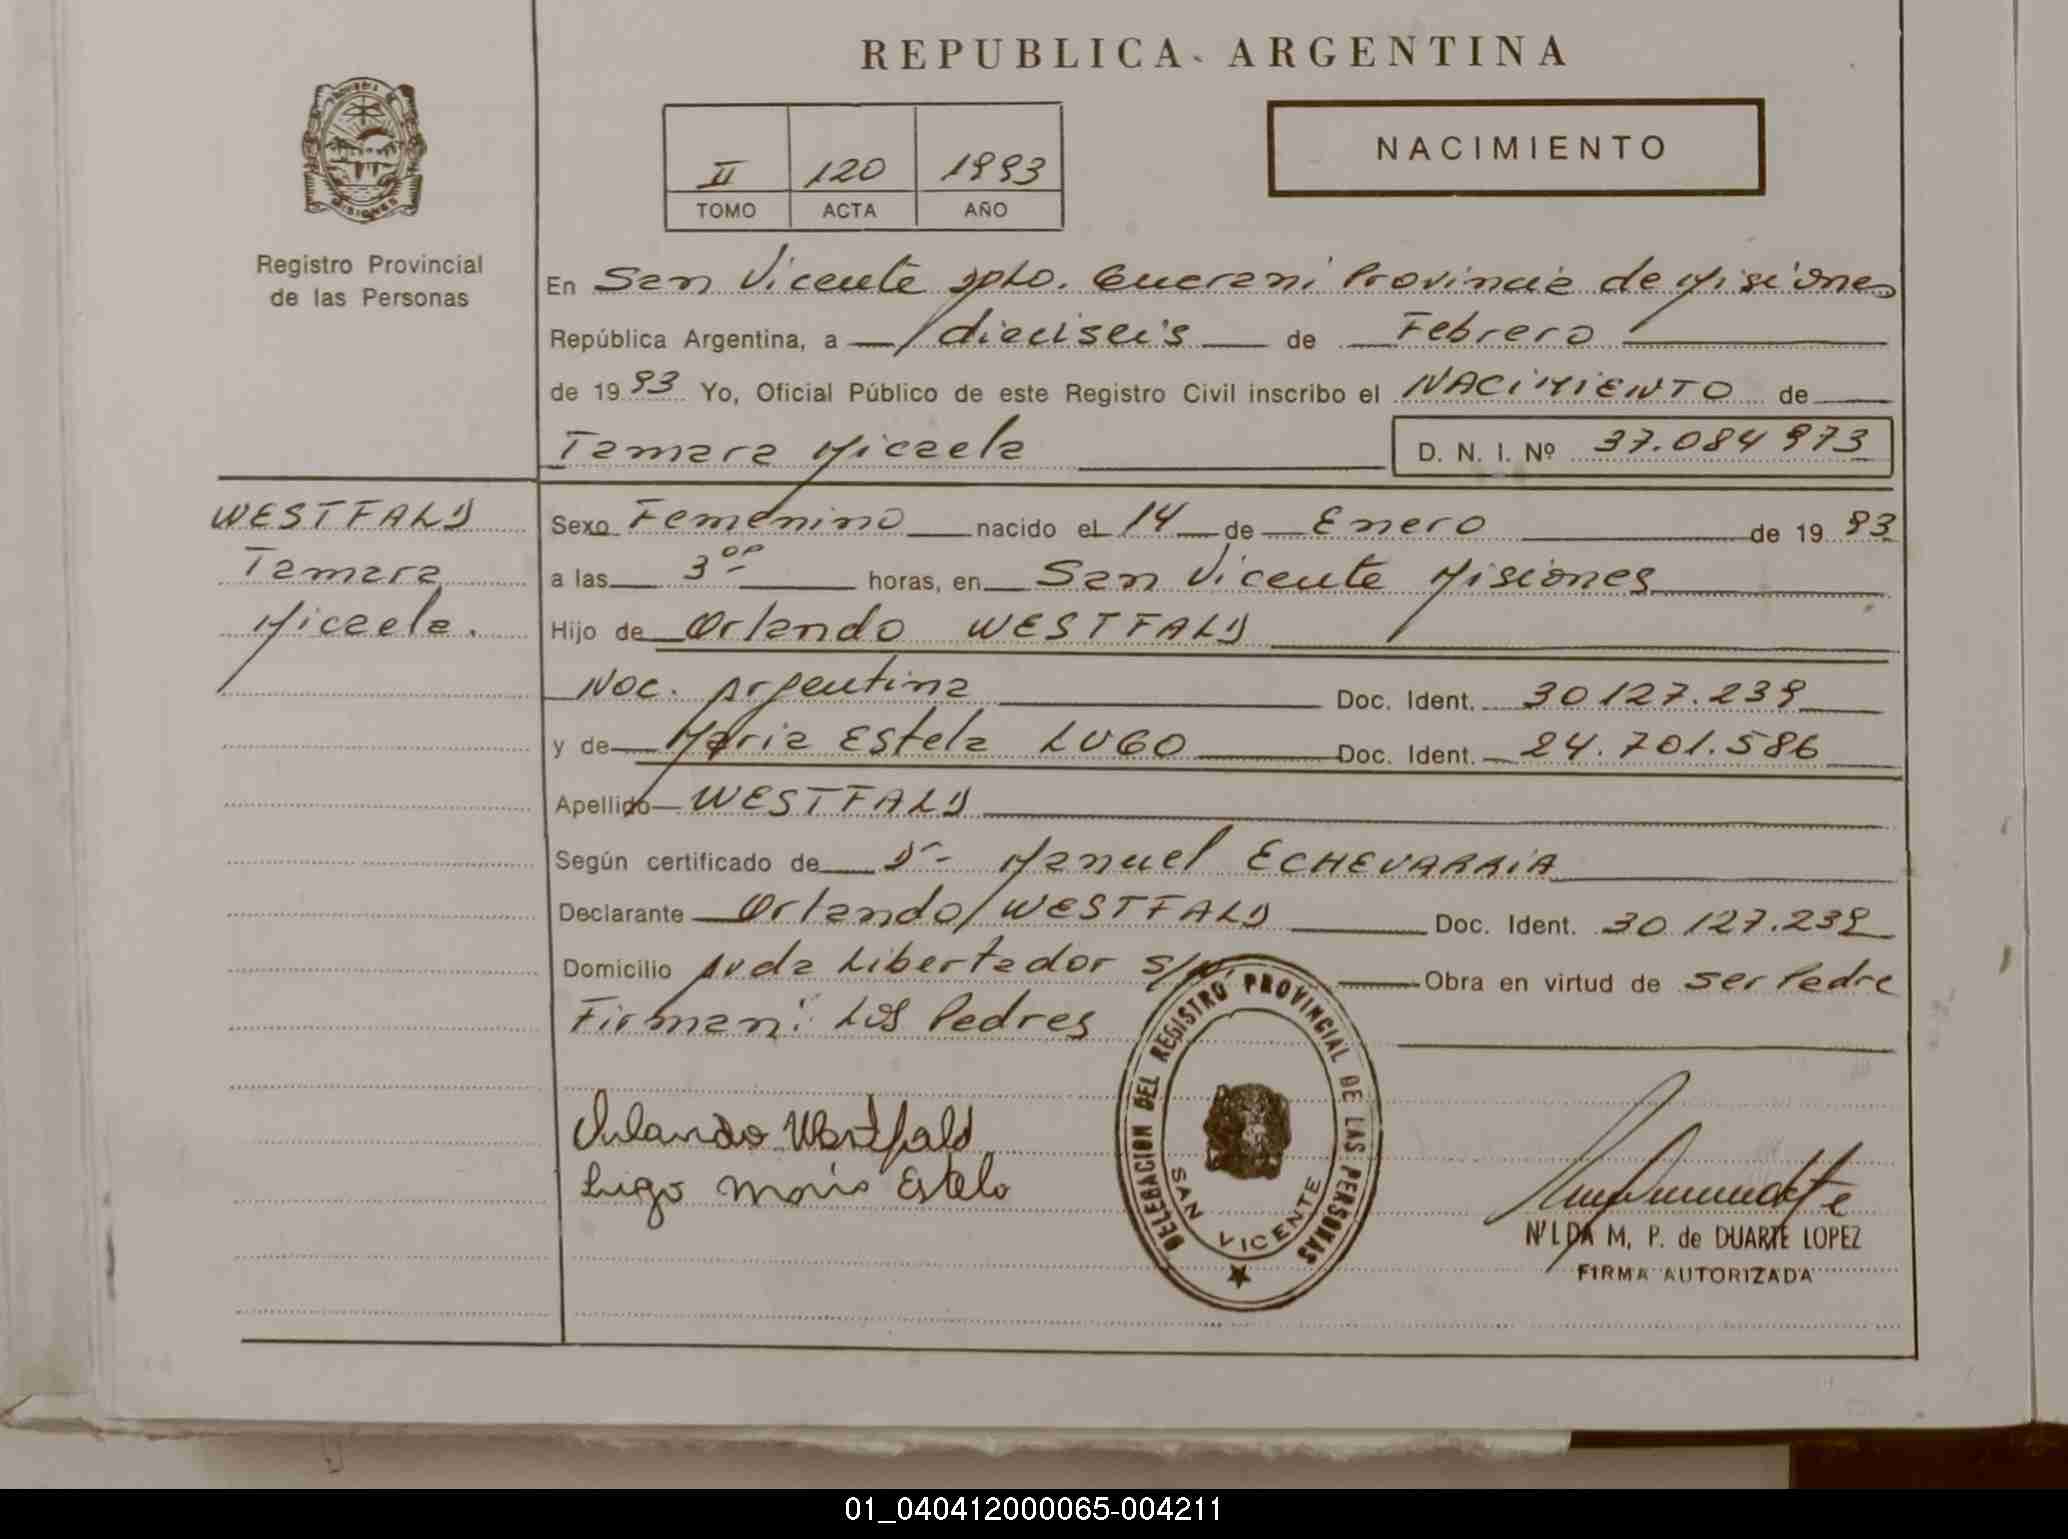 REPUBLICA ARGENTINA
NACIMIENTO
II 120 1993
TOMO ACTA AÑO
MISIONES
Registro Provincial
de las Personas
En San Vicente Dpto. Guarani Provincia de Misiones
República Argentina, a dieciseis de Febrero
de 1993 Yo, Oficial Público de este Registro Civil inscribo el NACIMIENTO de
Tamara Micaela D. N. I. Nº 37.084973
WESTFALD
Tamara
Micaela.
Sexo Femenino nacido el 14 de Enero de 1993
a las 3°° horas, en San Vicente Misiones
Hijo de Orlando WESTFALD
Nac. Argentina Doc. Ident. 30127.239
y de Maria Estela LUGO Doc. Ident. 24.701.586
Apellido WESTFALD
Según certificado de Dr Manuel ECHEVARRIA
Declarante Orlando WESTFALD Doc. Ident. 30127.239
Domicilio Avda Libertador S/N. Obra en virtud de ser Padre
Firman: Los Padres
Orlando Westfald
Lugo Maria Estela
DELEGACION DEL REGISTRO PROVINCIAL DE LAS PERSONAS
SAN VICENTE
NILDA M. P. de DUARTE LOPEZ
FIRMA AUTORIZADA
01_040412000065-004211